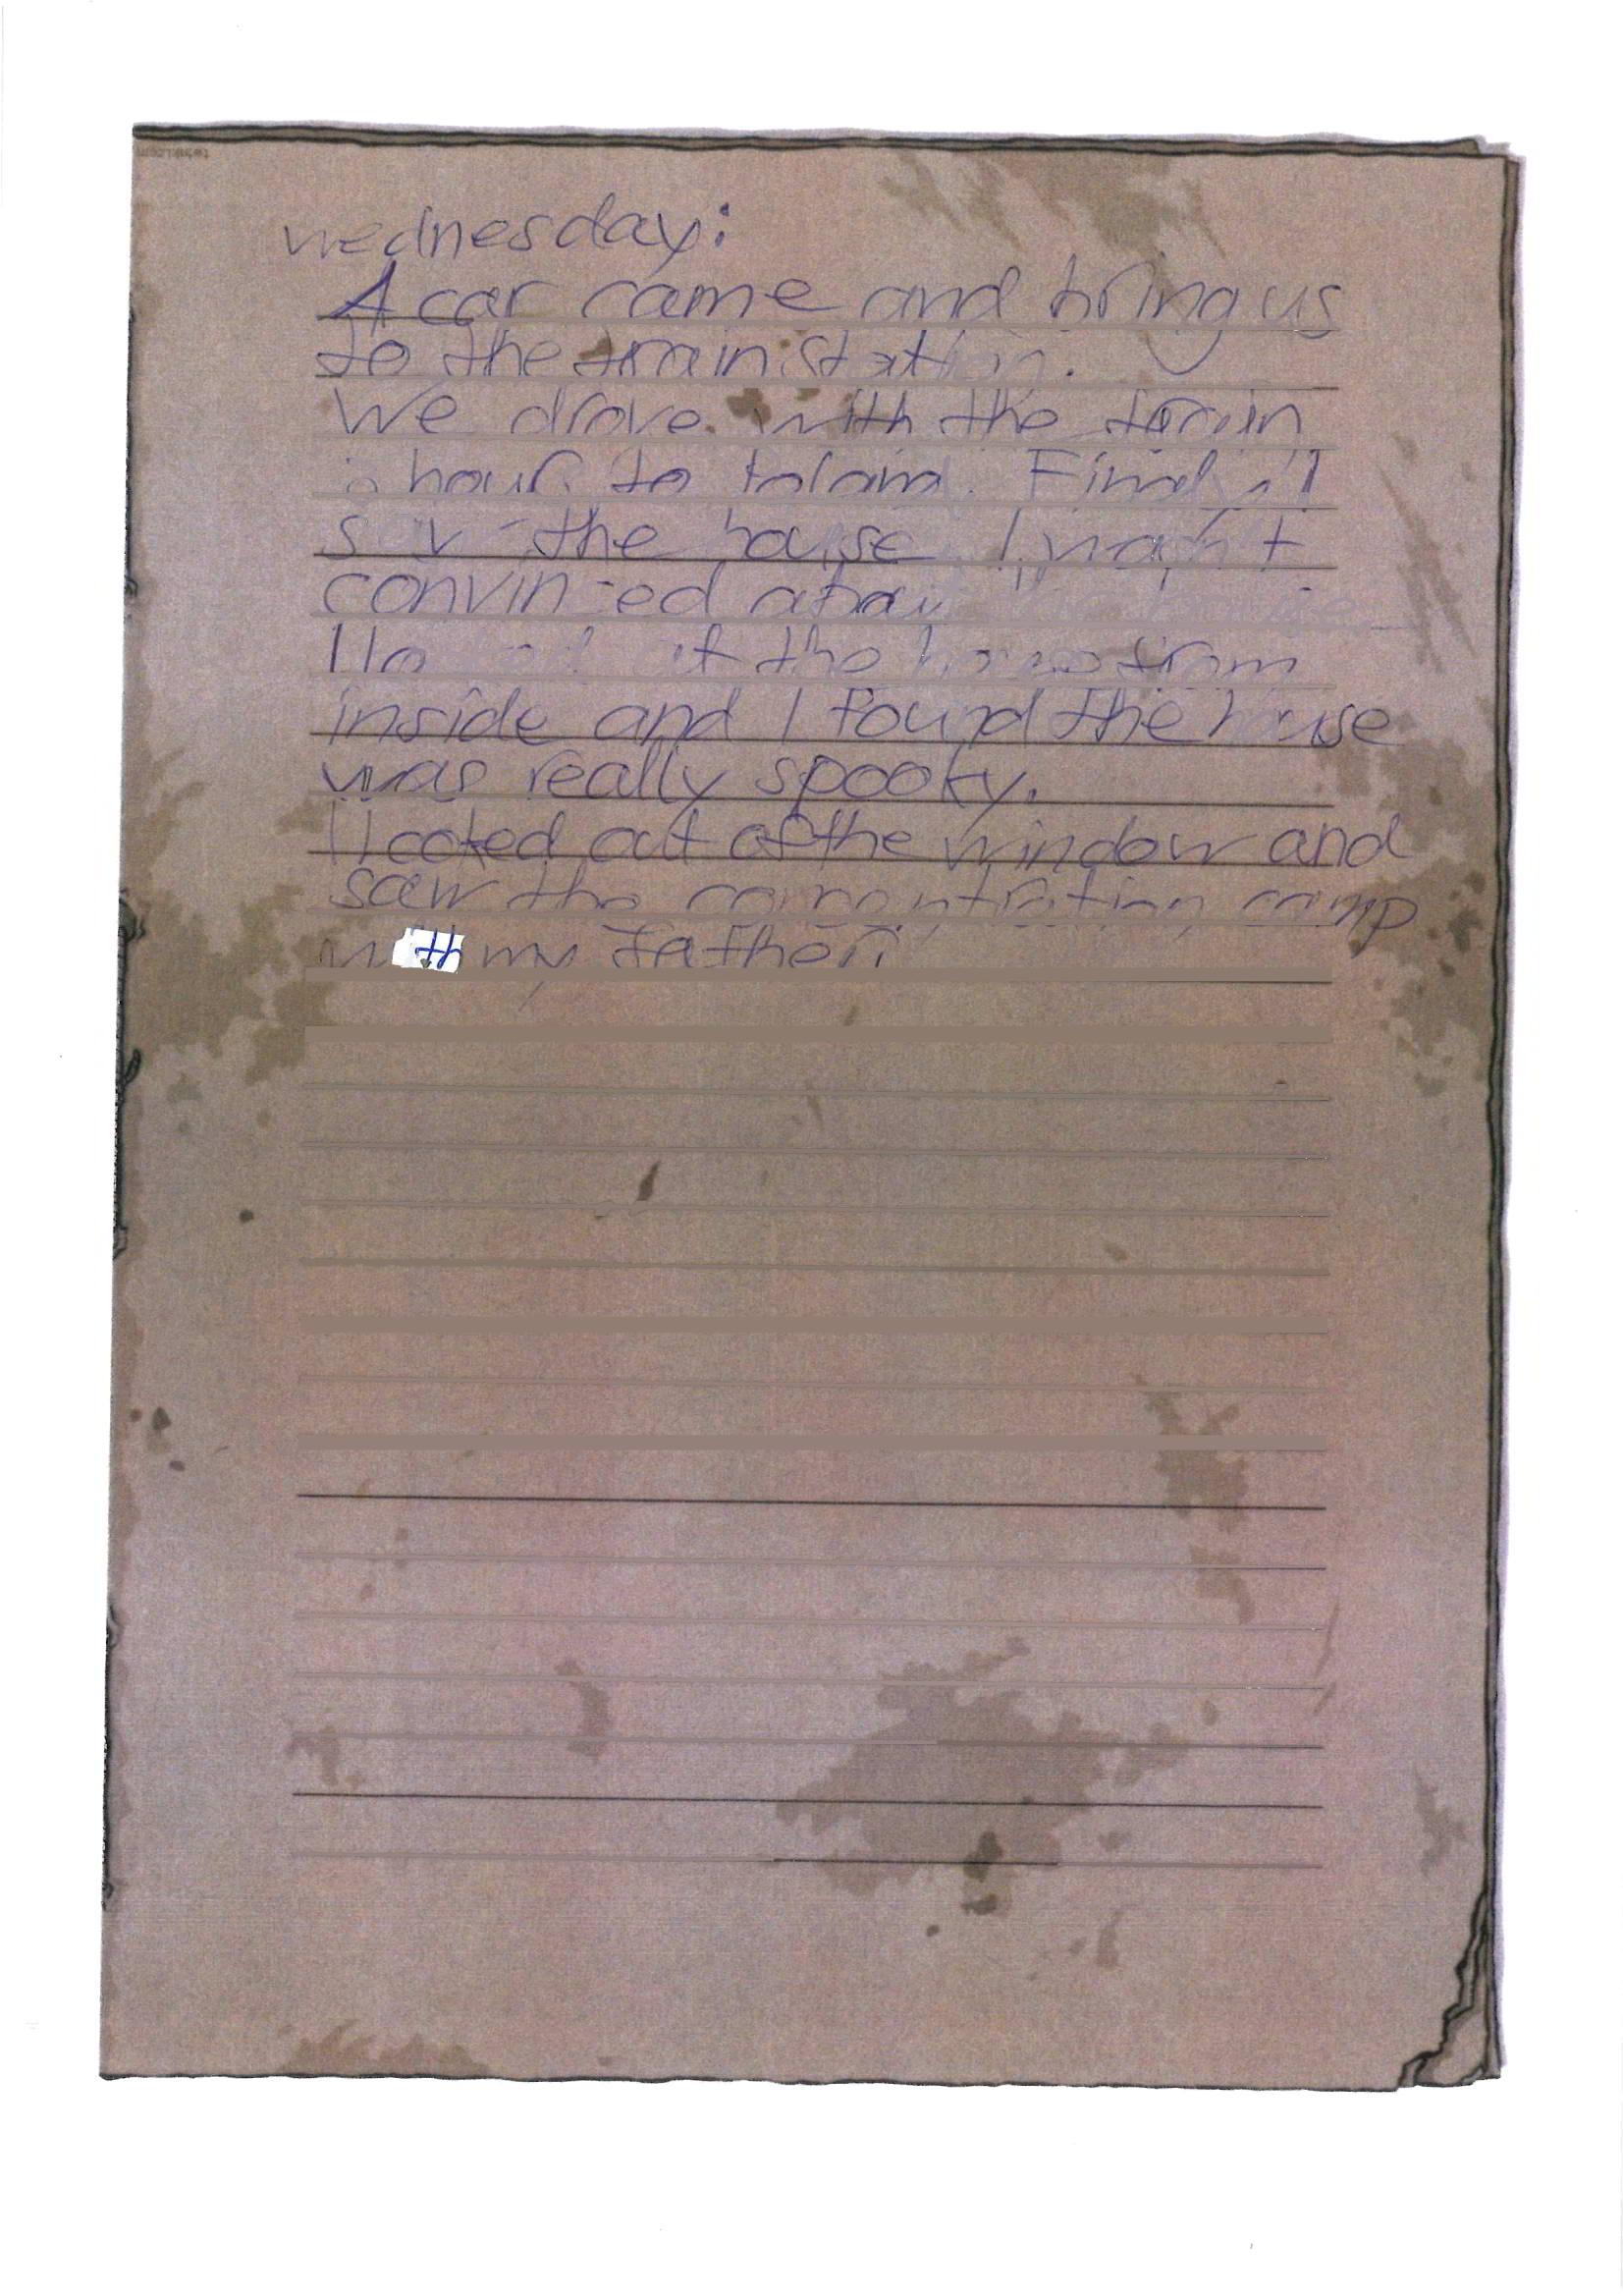 wednesday:
A car came and bring us
to the trainstation.
We drove with the train
hour to poland. Finaly I
saw the house I wasn't
convinced about
I looked at the house from
inside and I found the house
was really spooky.
I looked out of the window and
saw the camp
with my father.